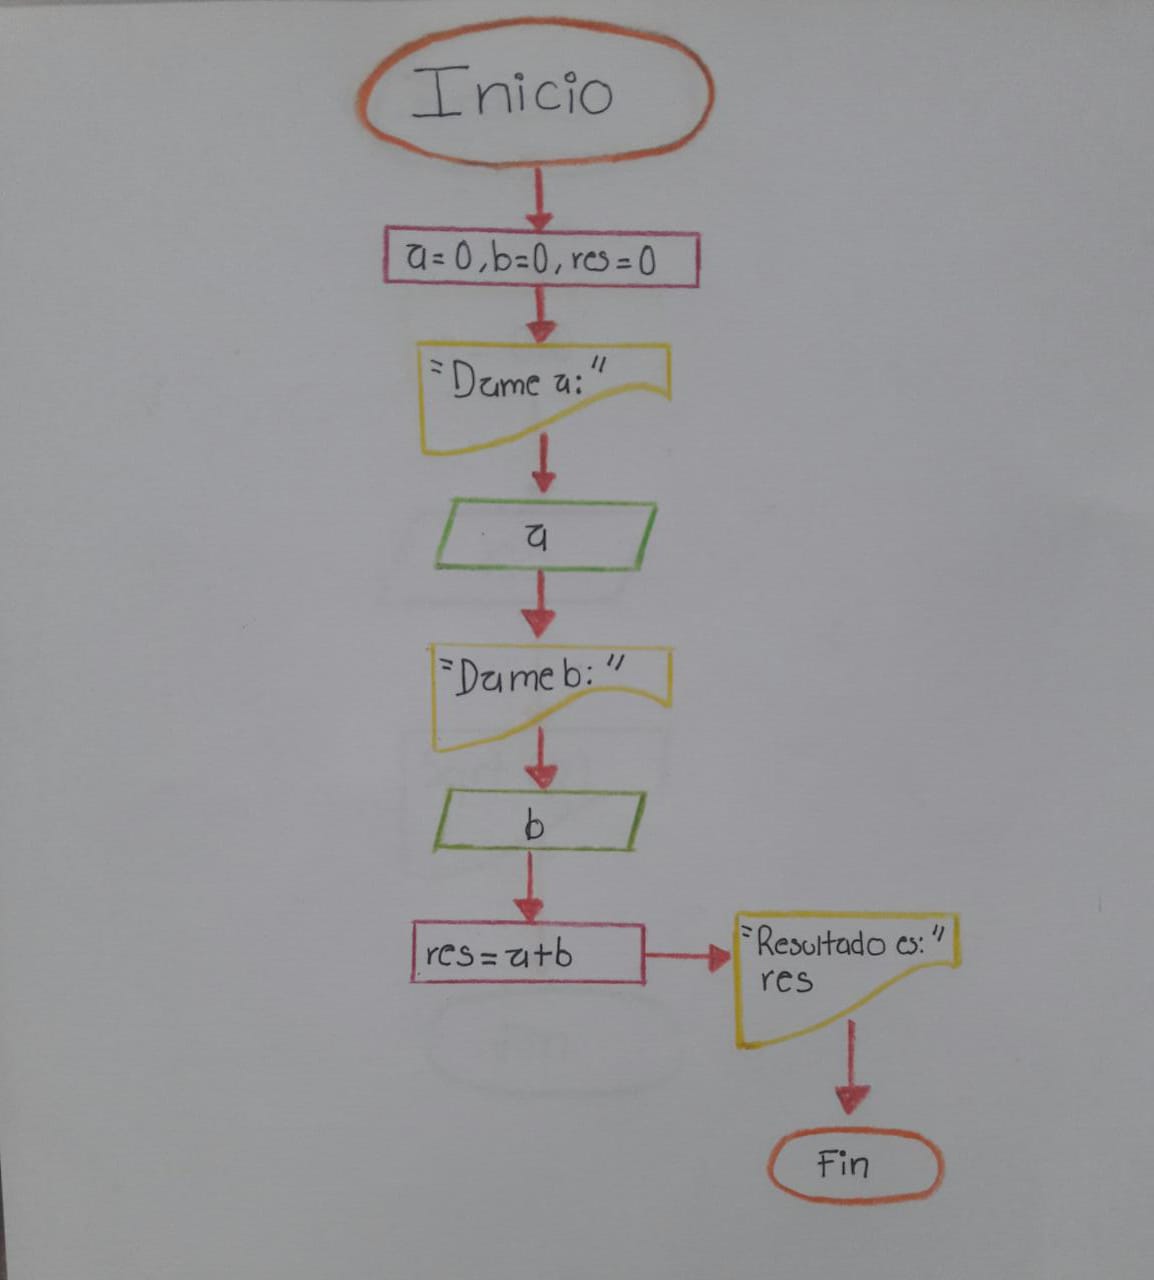 Inicio
a=0,b=0,res=0
"Dame a:"
a
"Dame b:"
b
res=a+b
"Resultado es:"
res
Fin